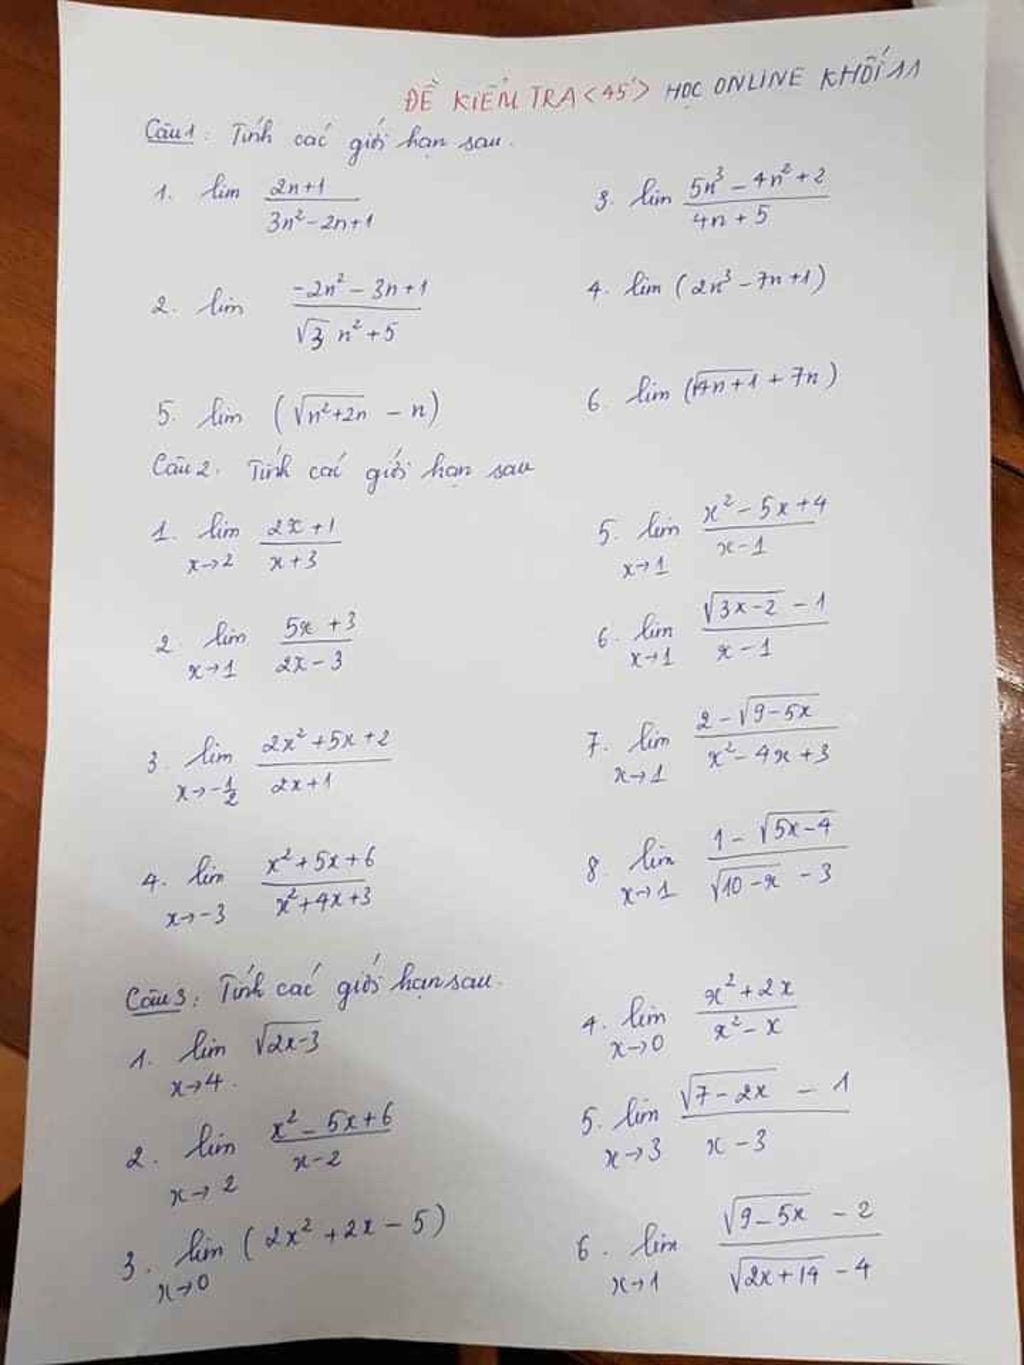 ĐỀ KIỂM TRA <45'> HỌC ONLINE KHỐI 11
Câu 1: Tính các giới hạn sau.
1. lim (2n+1)/(3n² - 2n + 1)
3. lim (5n³ - 4n² + 2)/(4n + 5)
2. lim (-2n² - 3n + 1)/(√3 n² + 5)
4. lim (2n³ - 7n + 1)
5. lim (√(n²+2n) - n)
6. lim (√(4n+1) + 7n)
Câu 2. Tính các giới hạn sau
1. lim x→2 (2x+1)/(x+3)
2. lim x→1 (5x+3)/(2x-3)
3. lim x→-1/2 (2x²+5x+2)/(2x+1)
4. lim x→-3 (x²+5x+6)/(x²+4x+3)
5. lim x→1 (x²-5x+4)/(x-1)
6. lim x→1 (√(3x-2) - 1)/(x-1)
7. lim x→1 (2-√(9-5x))/(x²-4x+3)
8. lim x→1 (1-√(5x-4))/(√(10-x) - 3)
Câu 3: Tính các giới hạn sau.
1. lim x→4. √(2x-3)
2. lim x→2 (x²-5x+6)/(x-2)
3. lim x→0 (2x²+2x-5)
4. lim x→0 (x²+2x)/(x²-x)
5. lim x→3 (√(7-2x) - 1)/(x-3)
6. lim x→1 (√(9-5x) - 2)/(√(2x+14) - 4)